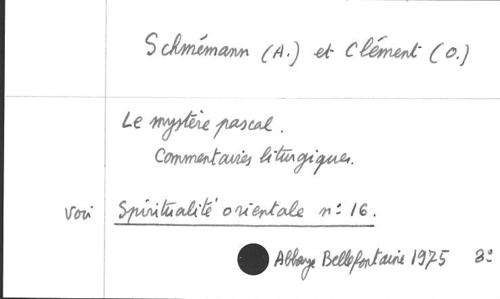 Schmémann (A.) et Clément (O.)
Le mystère pascal.
Commentaires liturgiques.
voir Spiritualité orientale n: 16.
Abbaye Bellefontaine 1975 8º